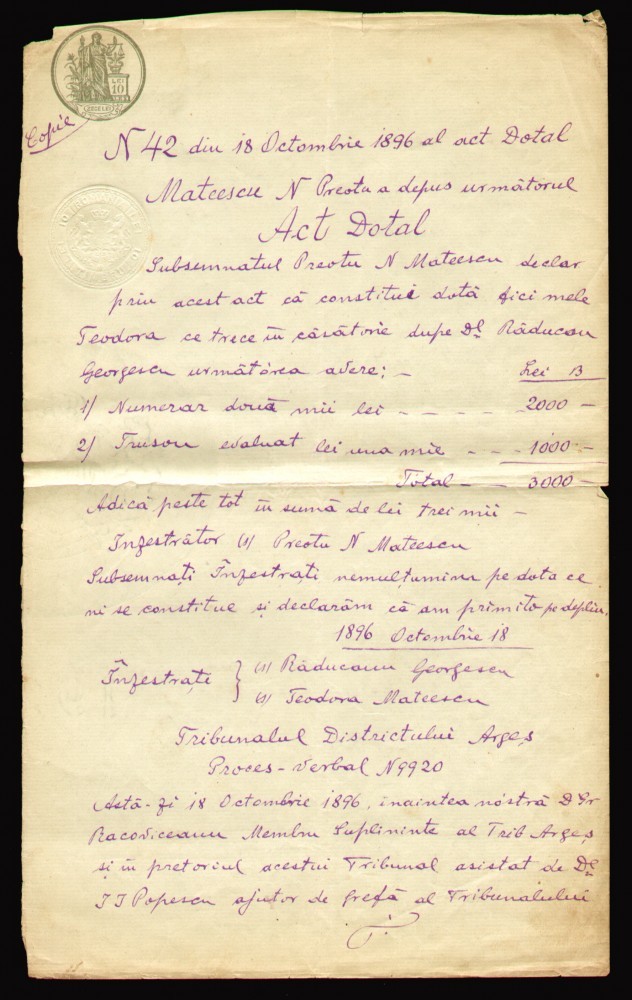 LEI
10
Copie
N 42 din 18 Octombrie 1896 al act Dotal
Mateescu N Preotu a depus următorul
Act Dotal
Subsemnatul Preotu N Mateescu declar
prin acest act că constitui dotă fici mele
Teodora ce trece în căsătorie dupe Dl Răducanu
Georgescu următórea avere; – Lei B
1/ Numerar două mii lei – – – – 2000 –
2/ Trusou evaluat lei una mie – – – 1000 –
Total – – 3000 –
Adică peste tot în sumă de lei trei mii –
Inzestrător (s) Preotu N Mateescu
Subsemnați Înzestrați nemulțumim pe dota ce
ni se constitue și declarăm că am primito pe deplin,
1896 Octombrie 18
Înzestrați } (s) Răducanu Georgescu
(s) Teodora Mateescu
Tribunalul Districtului Argeș
Proces-verbal N 9920
Astă-zi 18 Octombrie 1896, inaintea nóstră D Gr
Racoviceanu Membru Suplininte al Trib Argeș
și în pretoriul acestui Tribunal asistat de Dl
I I Popescu ajutor de grefă al Tribunalului